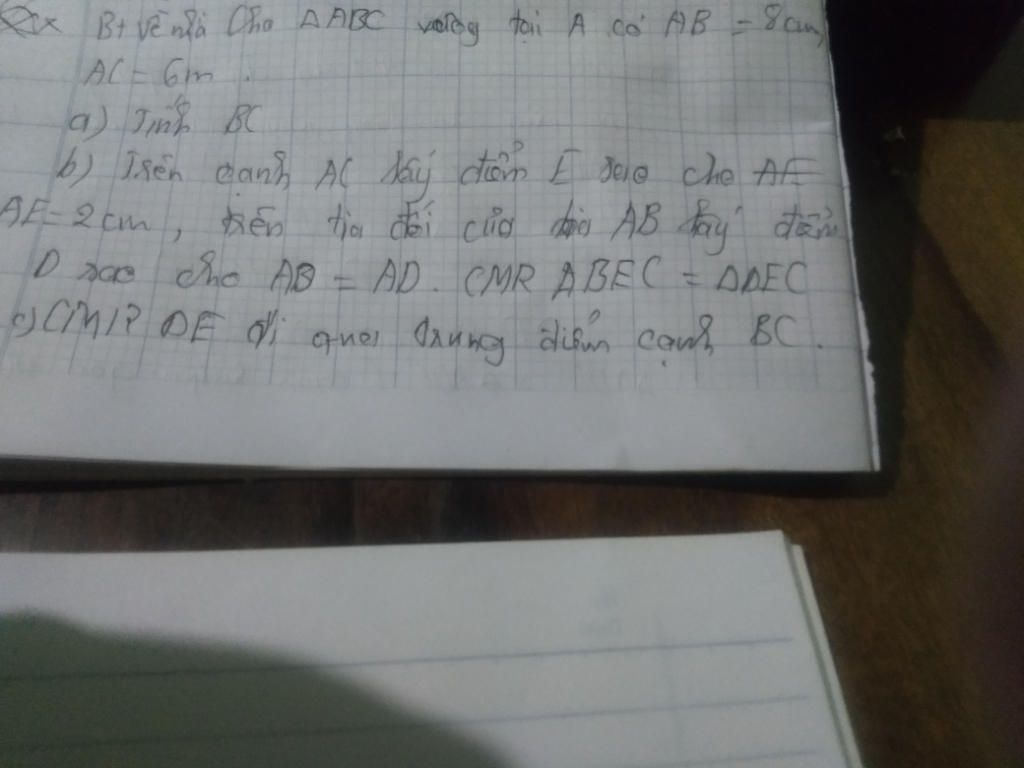 BT Về nhà Cho ΔABC vuông tại A có AB = 8cm,
AC = 6m.
a) Tính BC
b) Trên cạnh AC lấy điểm E sao cho AE
AE = 2cm, trên tia đối của tia AB lấy điểm
D sao cho AB = AD. CMR ΔBEC = ΔDEC
c) CMR DE đi qua trung điểm cạnh BC.